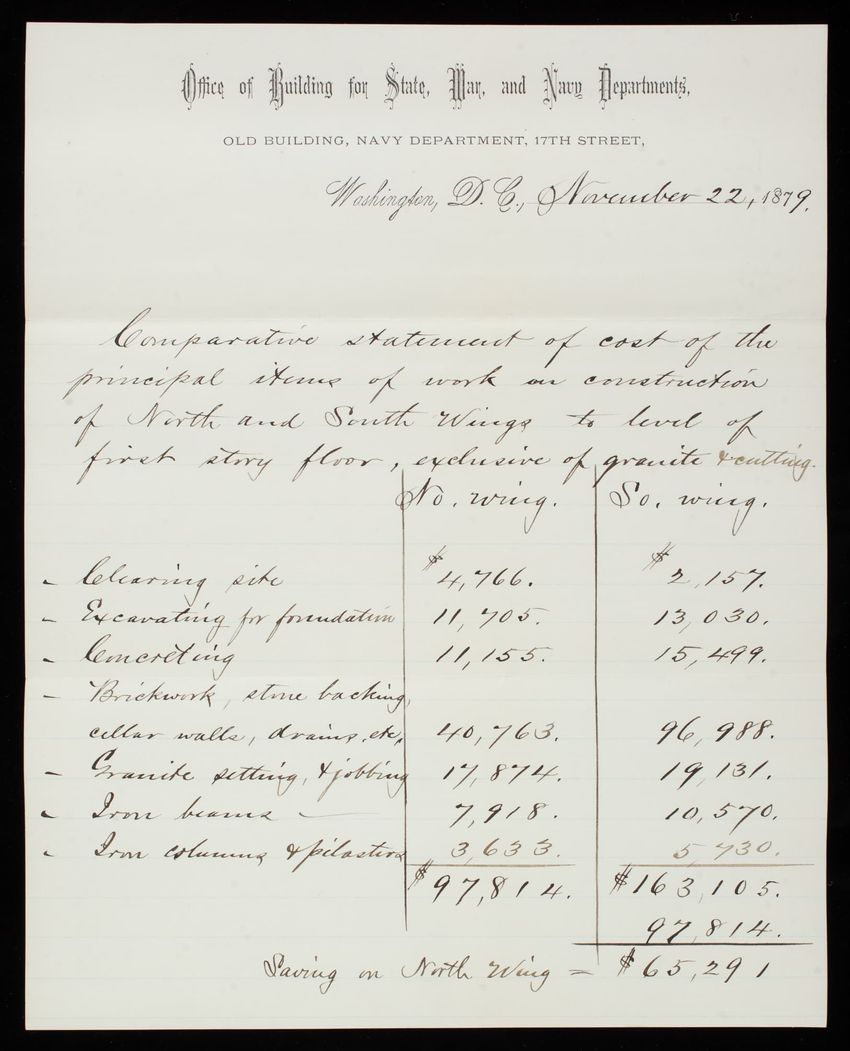 Office of Building for State, War, and Navy Departments,
OLD BUILDING, NAVY DEPARTMENT, 17TH STREET,
Washington, D. C., November 22, 1879.
Comparative statement of cost of the
principal items of work on construction
of North and South Wings to level of
first story floor, exclusive of granite & cutting.
No. wing. So. wing.
- Clearing site $4,766. $2,157.
- Excavating for foundation 11,705. 13,030.
- Concreting 11,155. 15,499.
- Brickwork, stone backing,
cellar walls, drains, etc, 40,763. 96,988.
- Granite setting, & jobbing 17,874. 19,131.
- Iron beams — 7,918. 10,570.
- Iron columns & pilasters 3,633. 5,730.
$97,814. $163,105.
97,814.
Saving on North Wing = $65,291